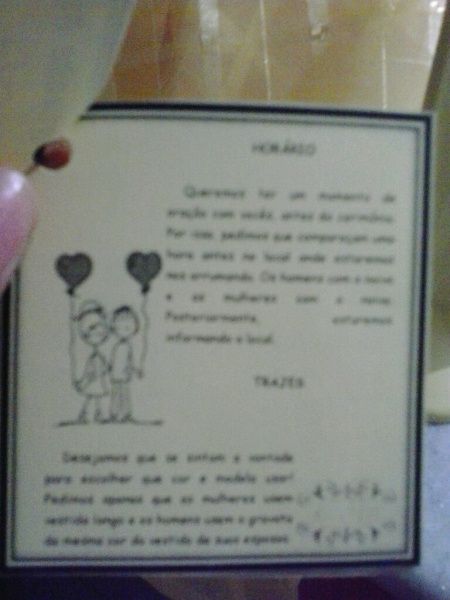 HORÁRIO
Queremos ter um momento de
oração com vocês, antes da cerimônia.
Por isso, pedimos que compareçam uma
hora antes no local onde estaremos
nos arrumando. Os homens com o noivo
e as mulheres com a noiva.
Posteriormente, estaremos
informando o local.
TRAJES
Desejamos que se sintam a vontade
para escolher que cor e modelo usar!
Pedimos apenas que as mulheres usem
vestido longo e os homens usem a gravata
da mesma cor do vestido de suas esposas.